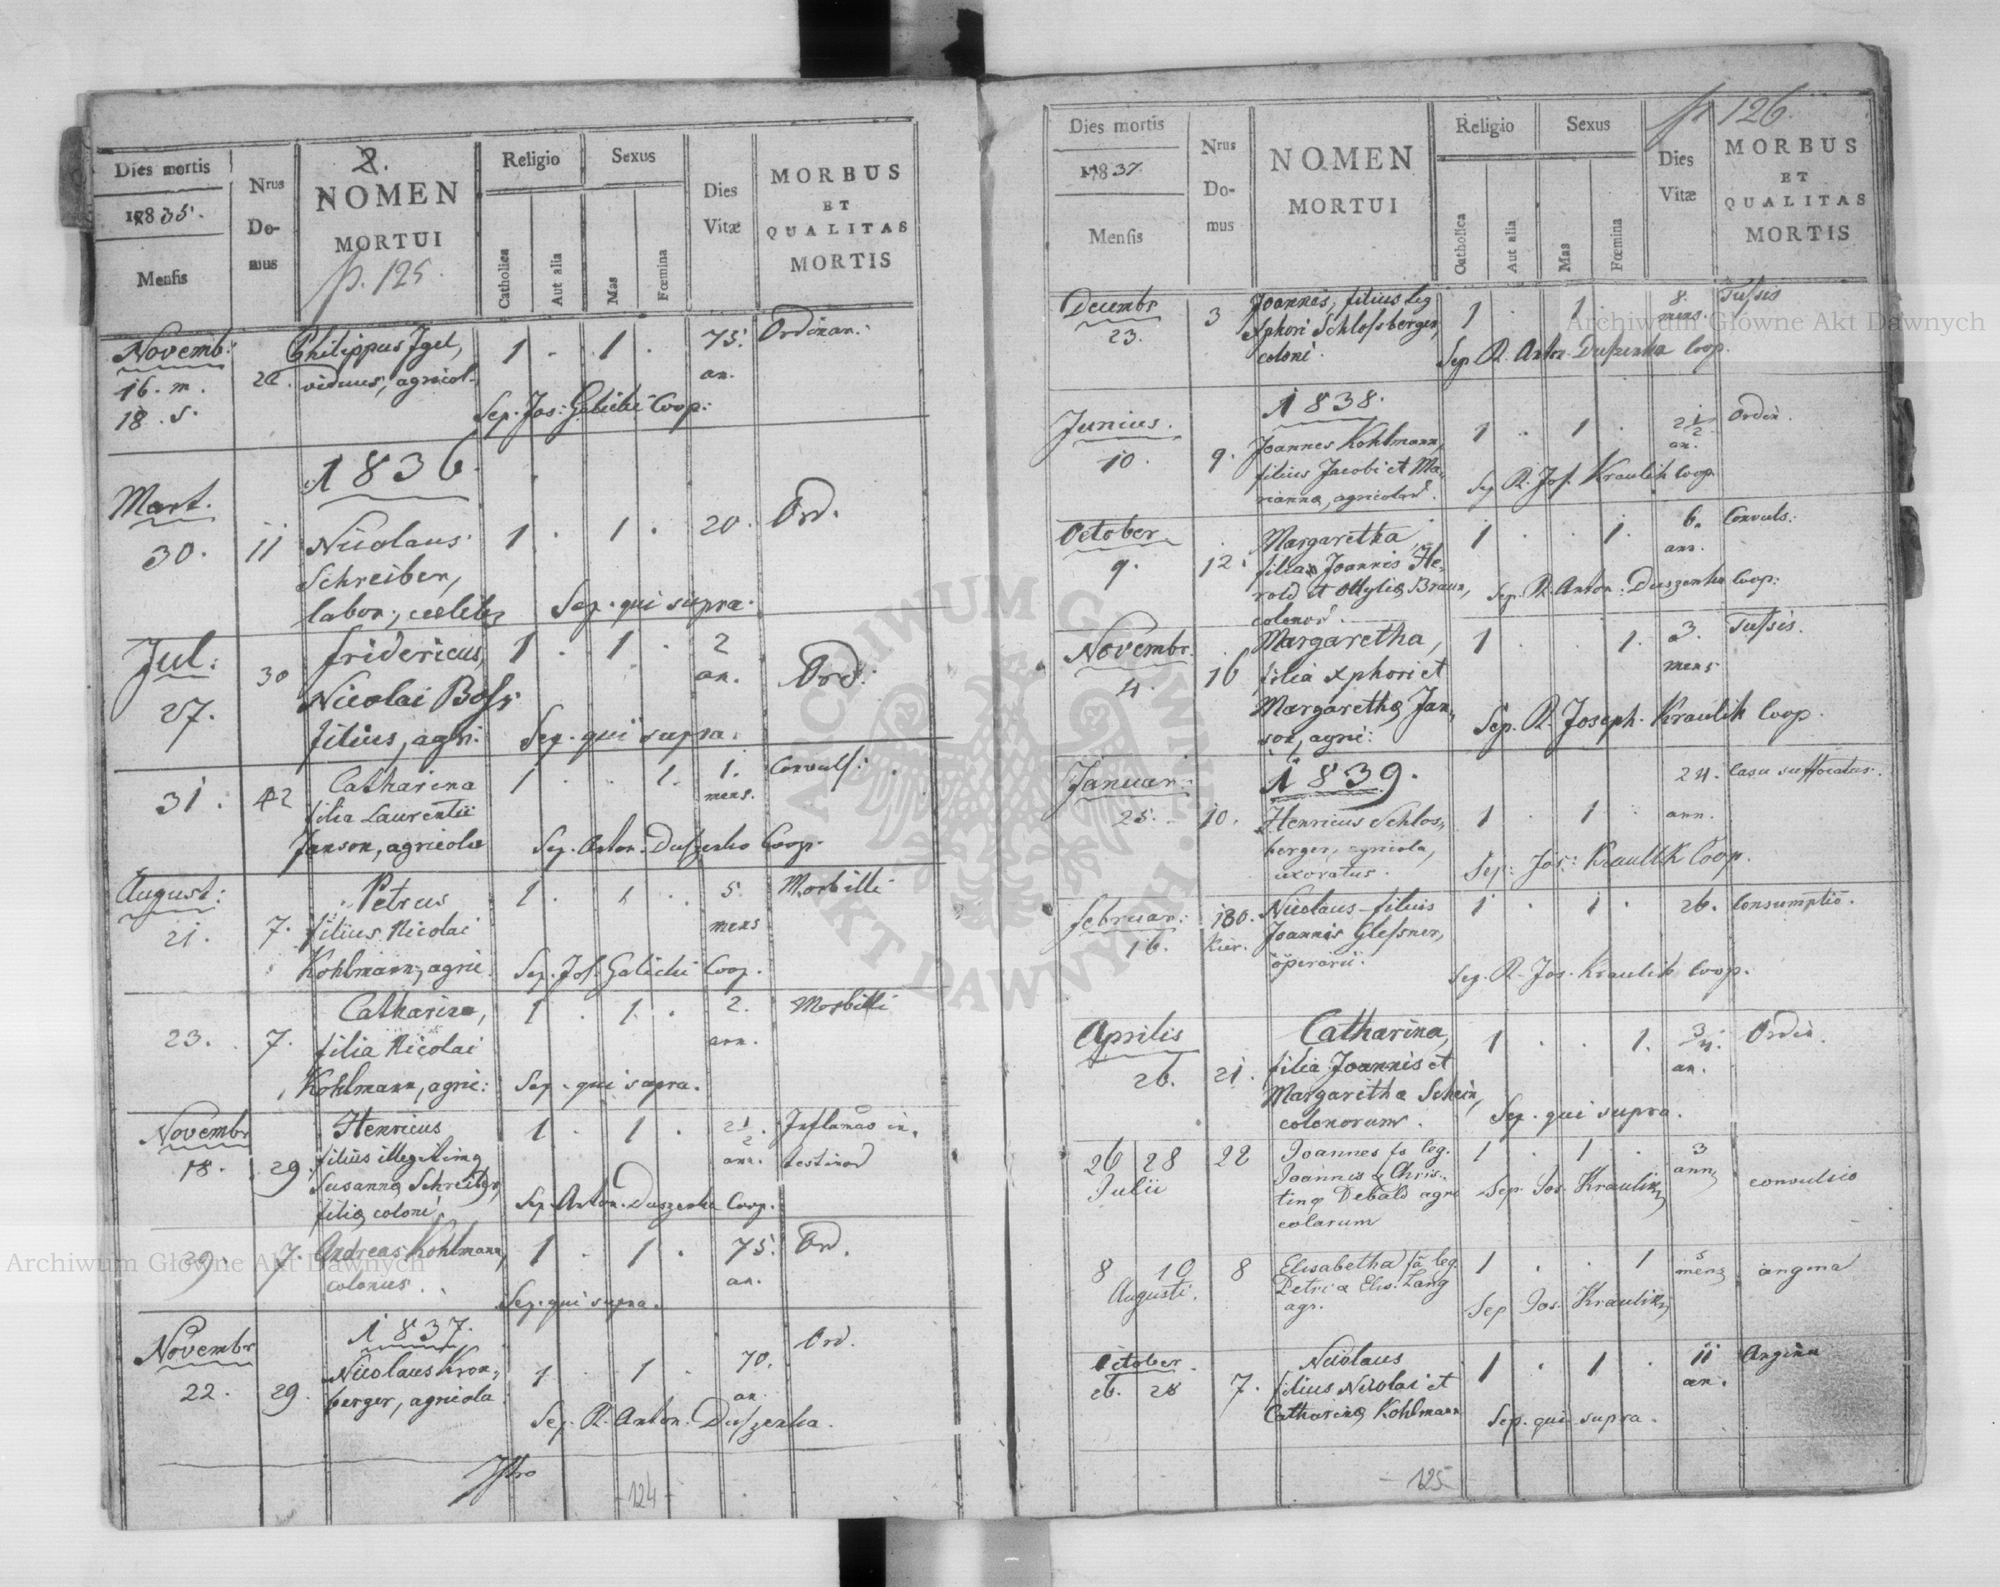 Dies mortis
1835.
Mensis
Nrus
Do-
mus
2.
NOMEN
MORTUI
p. 125.
Religio
Catholica
Aut alia
Sexus
Mas
Fœmina
Dies
Vitæ
MORBUS
ET
QUALITAS
MORTIS
Novemb:
16. m.
18. s.
22. Philippus Igel,
viduus, agricol.
1 . 1 . 75. an. Ordinar.:
Sep. Jos: Galicki Coop:
1836.
Mart.
30. 11 Nicolaus
Schreiber,
labor., cœlebs
1 . 1 . 20. Ord.
Sep. qui supra.
Jul:
27. 30 fridericus,
Nicolai Boss
filius, agri:
1 . 1 . 2 an. Ord:
Sep. qui supra.
31. 42 Catharina
filia Laurentii
Janson, agricolæ
1 . . 1. 1. mens. Convuls:
Sep. Anton. Duszenko Coop.
August:
21. 7. Petrus
filius Nicolai
Kohlmann, agric.
1 . 1 . 5. mens Morbilli
Sep. Jos. Galicki Coop.
23. 7. Catharina,
filia Nicolai
Kohlmann, agric:
1 . 1 . 2. ann. Morbilli
Sep. qui supra.
Novembr
18. 29. Henricus
filius illegitimq
Susannę Schreiber,
filię coloni.
1 . 1 . 2 1/2 ann. Inflamao in,
testinor
Sep. Anton. Duszenko Coop.
29. 7. Andreas Kohlmann,
colonus.
1 . 1 . 75. an. Ord.
Sep. qui supra.
1837.
Novembr
22. 29. Nicolaus Kron,
berger, agricola
1 . 1 . 70. an. Ord.
Sep. R. Anton. Duszenko.
-124-
p. 126.
Dies mortis
1837.
Mensis
Nrus
Do-
mus
NOMEN
MORTUI
Religio
Catholica
Aut alia
Sexus
Mas
Fœmina
Dies
Vitæ
MORBUS
ET
QUALITAS
MORTIS
Decembr
23. 3 Joannes, filius leg
Xphori Schlossberger,
coloni.
1 . 1 . 8. mens. Tussis
Sep. R. Anton. Duszenko Coop.
1838.
Junius.
10. 9. Joannes Kohlmann,
filius Jacobi et Ma-
riannę, agricolar.
1 . 1 . 2 1/2 an. Ordin.
Sep R. Jos. Kraulik Coop.
October
9. 12. Margaretha,
filia Joannis He-
rold et Ottylię Braun,
colonor.
1 . . 1. 6. ann. Convuls:
Sep. R. Anton: Duszenko Coop:
Novembr.
4. 16 Margaretha,
filia Xphori et
Margarethę Jan,
son, agric:
1 . . 1. 3. mens Tussis.
Sep. R. Joseph. Kraulik Coop.
1839.
Januar:
25. 10. Henricus Schlos,
berger, agricola,
uxoratus.
1 . 1 . 24. ann. Casu suffocatus.
Sep: Jos: Kraulik Coop.
februar:
16. 130. Kier. Nicolaus filius
Joannis Glessner,
operarii.
1 . 1 . 26. Consumptio.
Sep. R. Jos. Kraulik Coop.
Aprilis
26. 21. Catharina,
filia Joannis et
Margaritha Schein,
colonorum.
1 . . 1. 3/4. an. Ordin.
Sep. qui supra.
26 28
Julii
22 Joannes fs leg.
Joannis & Chris-
tinę Debald agri
colarum
1 . 1 . 3 ann, convulsio
Sep. Jos. Kraulik,
8 10
Augusti.
8 Elisabetha fa leg.
Petri & Elis. Lang
agr.
1 . . 1 5 mens angina
Sep Jos. Kraulik,
October.
26. 28 7. Nicolaus
filius Nicolai et
Catharinę Kohlmann
1 . 1 . 11 an. Angina
Sep. qui supra.
-125-
Archiwum Główne Akt Dawnych
Archiwum Główne Akt Dawnych
ARCHIWUM GŁÓWNE AKT DAWNYCH